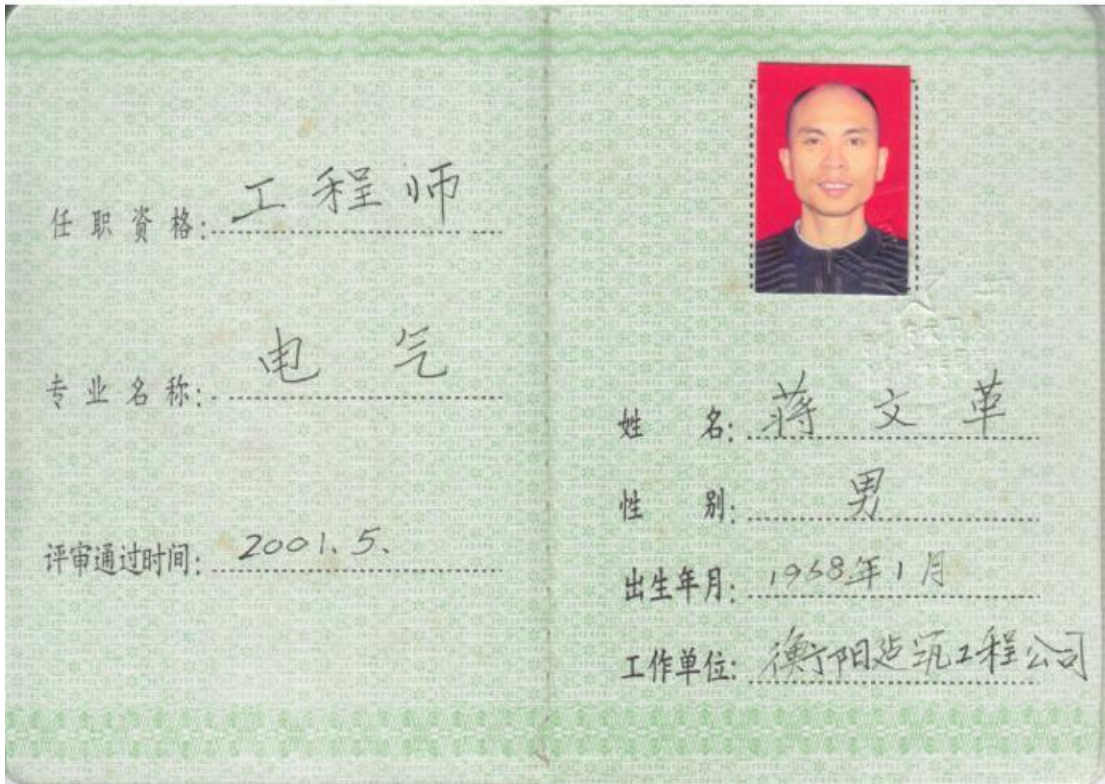 任职资格: 工程师
专业名称: 电气
评审通过时间: 2001.5.
姓名: 蒋文革
性别: 男
出生年月: 1968年1月
工作单位: 衡阳建筑工程公司